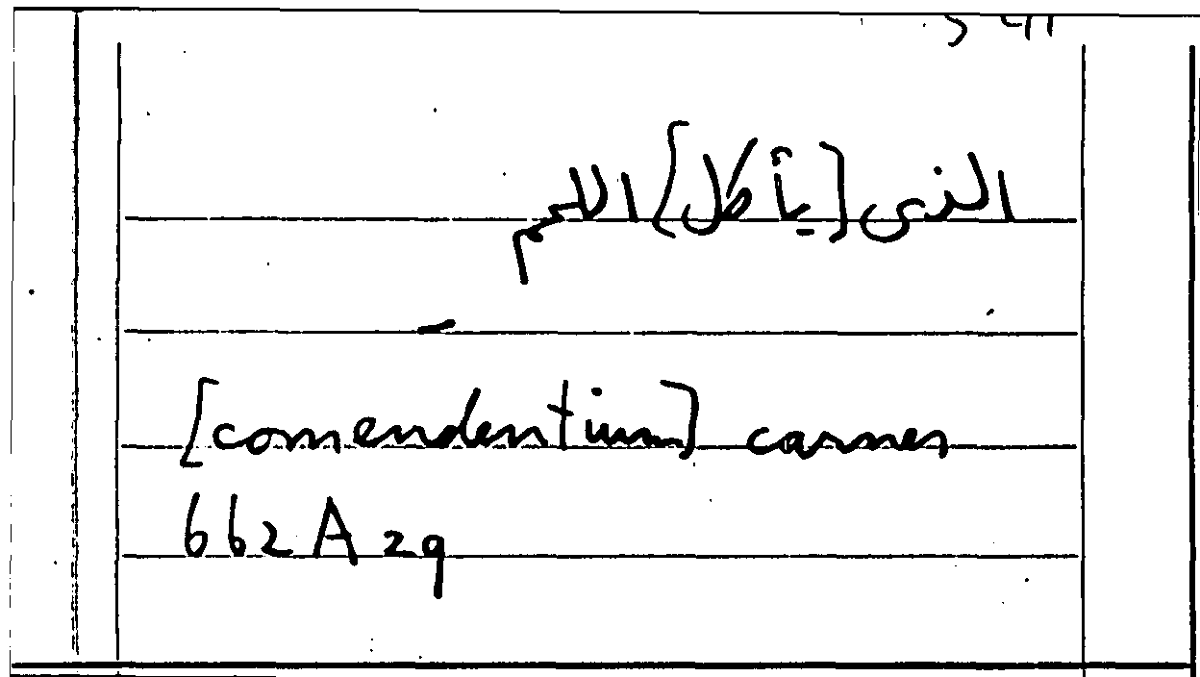 الذى [يأكل] اللحم
[comendentium] carnes
662 A 29